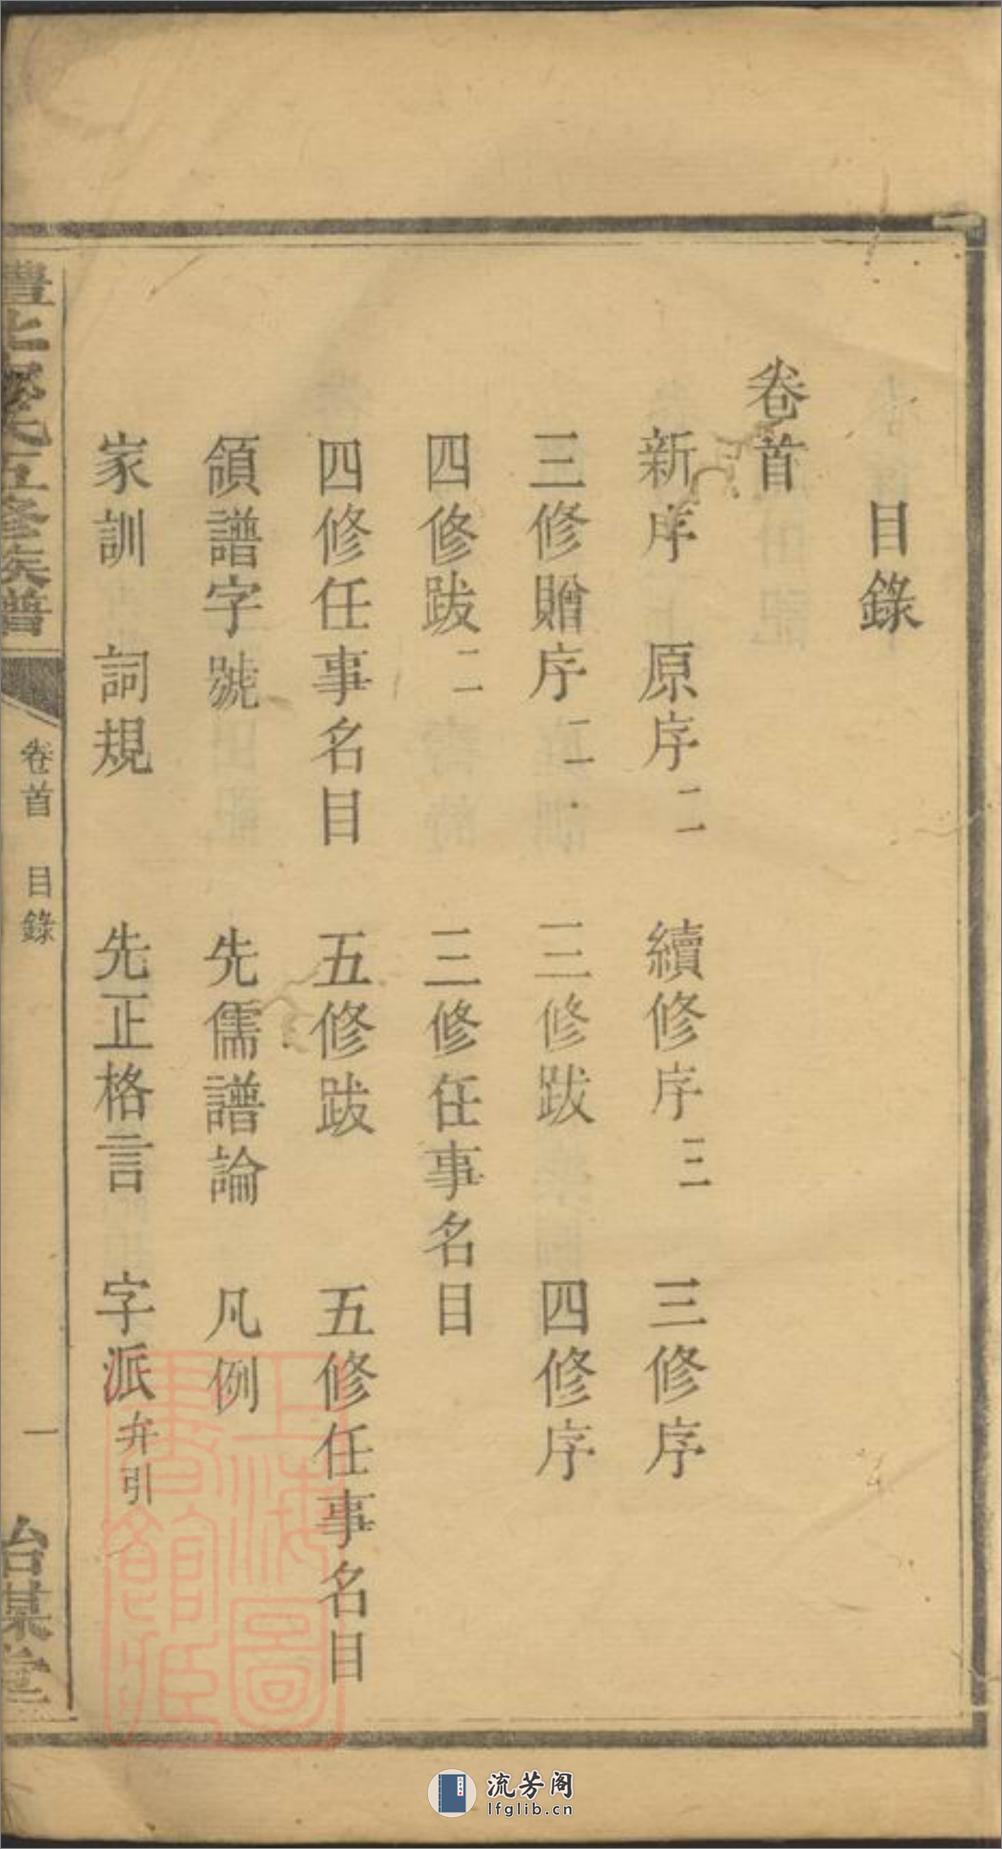 目錄
卷首
新序 原序二 續修序三 三修序
三修贈序二 三修跋 四修序
四修跋二 三修任事名目
四修任事名目 五修跋 五修任事名目
領譜字號 先儒譜論 凡例
家訓 詞規 先正格言 字派弁引
氏五修族譜 卷首 目錄 一
上海圖書館藏
流芳阁
lfglib.cn